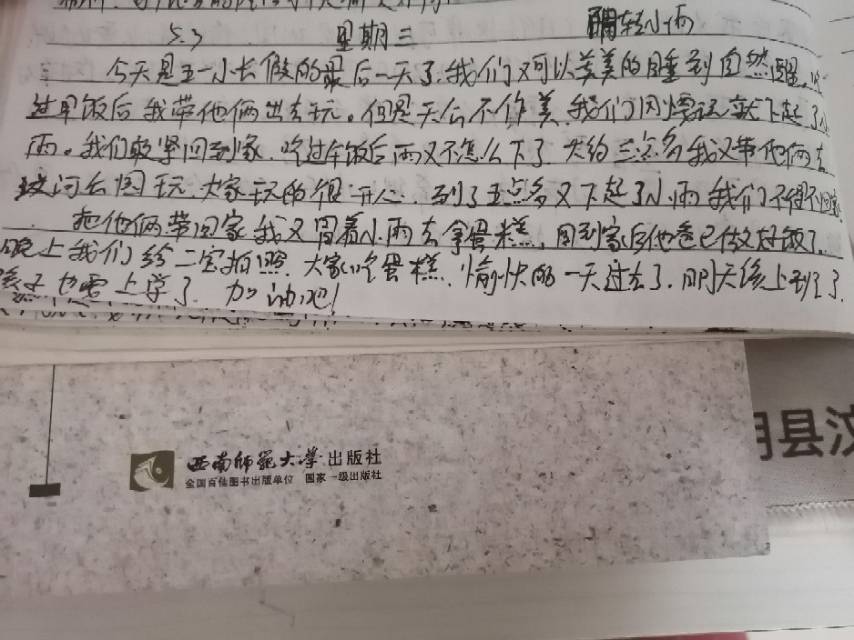 5.3 星期三 阴转小雨
今天是五一小长假的最后一天了,我们又可以美美的睡到自然醒。吃
过早饭后我带他俩出去玩。但是天公不作美,我们刚 就下起了小
雨。我们敢紧回到家,吃过午饭后雨又不怎么下了,大约三点多我又带他俩去
滨河公园玩,大家玩的很开心,到了五点多又下起了小雨我们不得不回家,
把他俩带回家我又冒着小雨去拿蛋糕,回到家后他爸已做好饭了。
晚上我们给二宝拍照,大家吃蛋糕,愉快的一天过去了,明天该上班了,
孩子也要上学了,加油吧!
西南师范大学出版社
全国百佳图书出版单位 国家一级出版社
明县汶